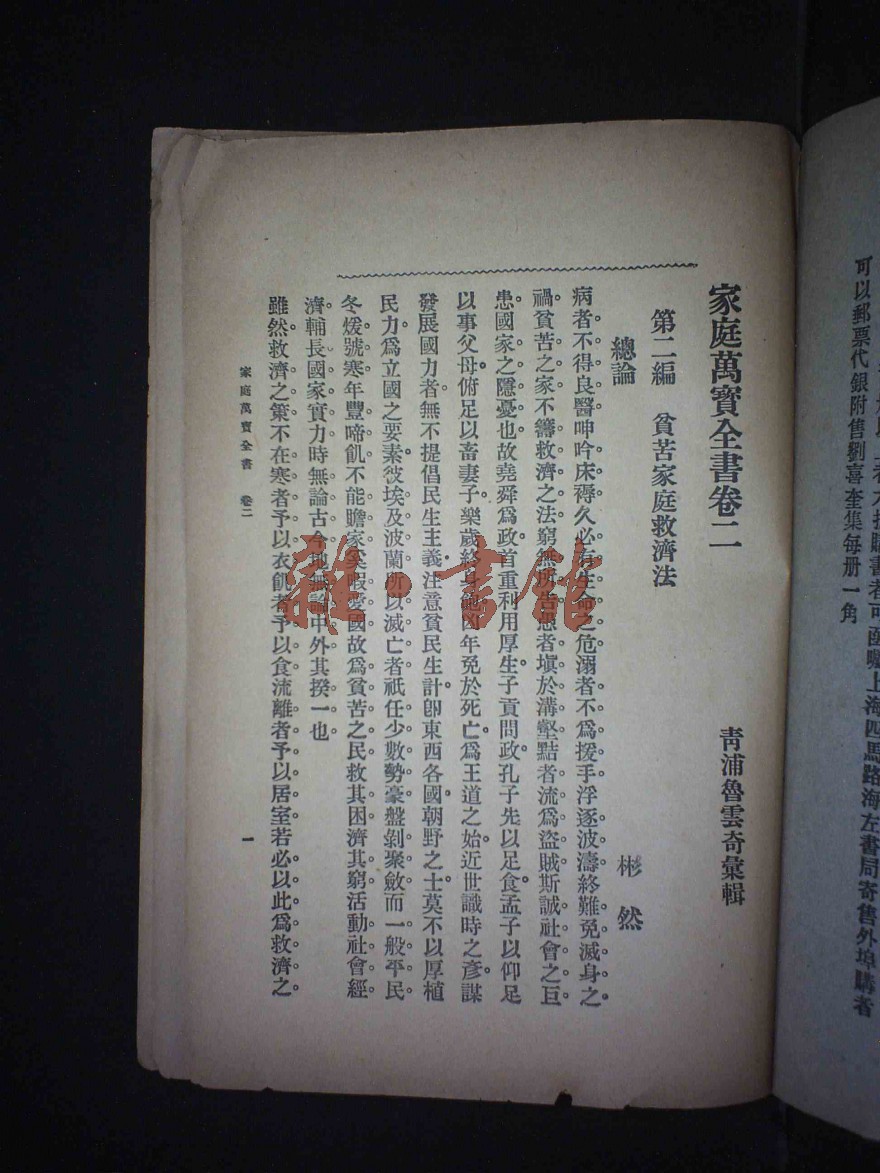 可以郵票代銀附售劉喜奎集每册一角
家庭萬寶全書卷二
青浦魯雲奇彙輯
第二編 貧苦家庭救濟法
總論
彬然
病者不得良醫呻吟床褥久必有生命之危溺者不爲援手浮逐波濤終難免滅身之
禍貧苦之家不籌救濟之法窮無所告愚者塡於溝壑黠者流爲盜賊斯誠社會之巨
患國家之隱憂也故堯舜爲政首重利用厚生子貢問政孔子先以足食孟子以仰足
以事父母俯足以畜妻子樂歲終身飽凶年免於死亡爲王道之始近世識時之彥謀
發展國力者無不提倡民生主義注意貧民生計卽東西各國朝野之士莫不以厚植
民力爲立國之要素彼埃及波蘭所以滅亡者祇任少數勢豪盤剝聚斂而一般平民
冬煖號寒年豐啼飢不能贍家奚暇愛國故爲貧苦之民救其困濟其窮活動社會經
濟輔長國家實力時無論古今地無論中外其揆一也
雖然救濟之策不在寒者予以衣飢者予以食流離者予以居室若必以此爲救濟之
家庭萬寶全書 卷二
一
雜·書館